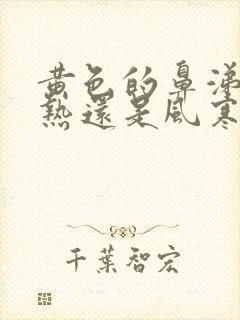 黄色的鼻涕
熱還是風寒
千葉智宏